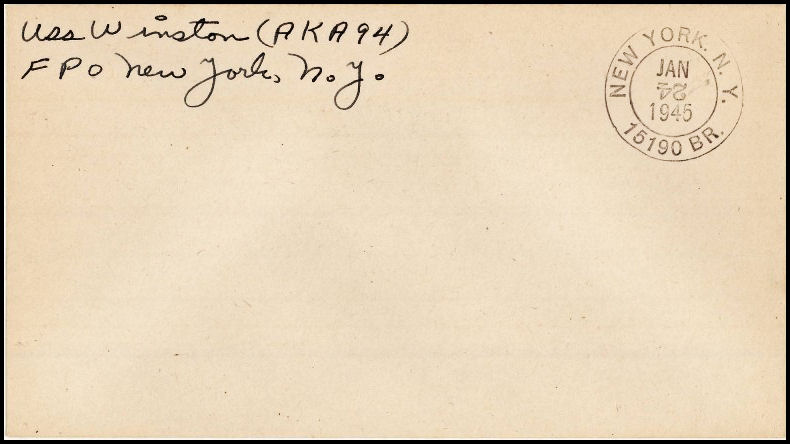 USS Winston (AKA94)
FPO New York, N.Y.
NEW YORK. N. Y.
JAN
24
1945
15190 BR.